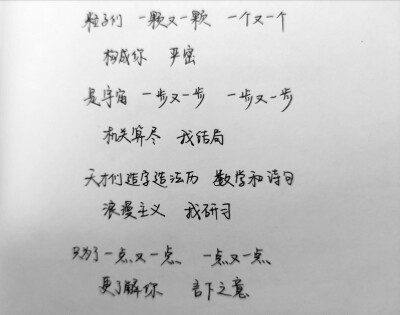 粒子们 一颗又一颗 一个又一个
构成你 严密
是宇宙 一步又一步 一步又一步
机关算尽 我结局
天才们造字造法历 数学和诗句
浪漫主义 我研习
只为了一点又一点 一点又一点
更了解你 言下之意